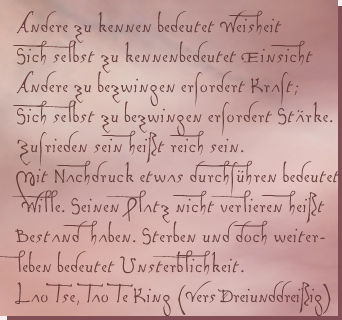 Andere zu kennen bedeutet Weisheit
Sich selbst zu kennenbedeutet Einsicht
Andere zu bezwingen erfordert Kraft;
Sich selbst zu bezwingen erfordert Stärke.
Zufrieden sein heißt reich sein.
Mit Nachdruck etwas durchführen bedeutet
Wille. Seinen Platz nicht verlieren heißt
Bestand haben. Sterben und doch weiter-
leben bedeutet Unsterblichkeit.
Lao Tse, Tao Te King (Vers Dreiunddreißig)